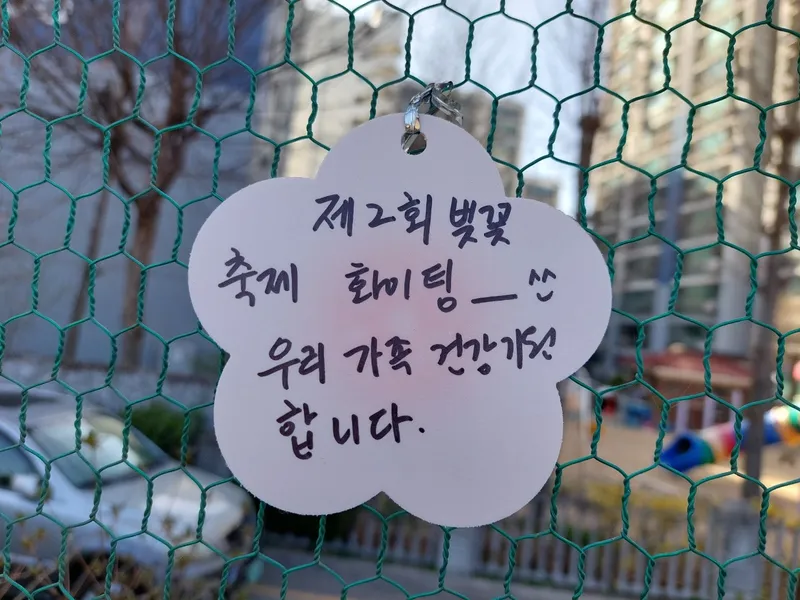 제2회 벚꽃
축제 화이팅 __ ^^
우리 가족 건강기원
합니다.